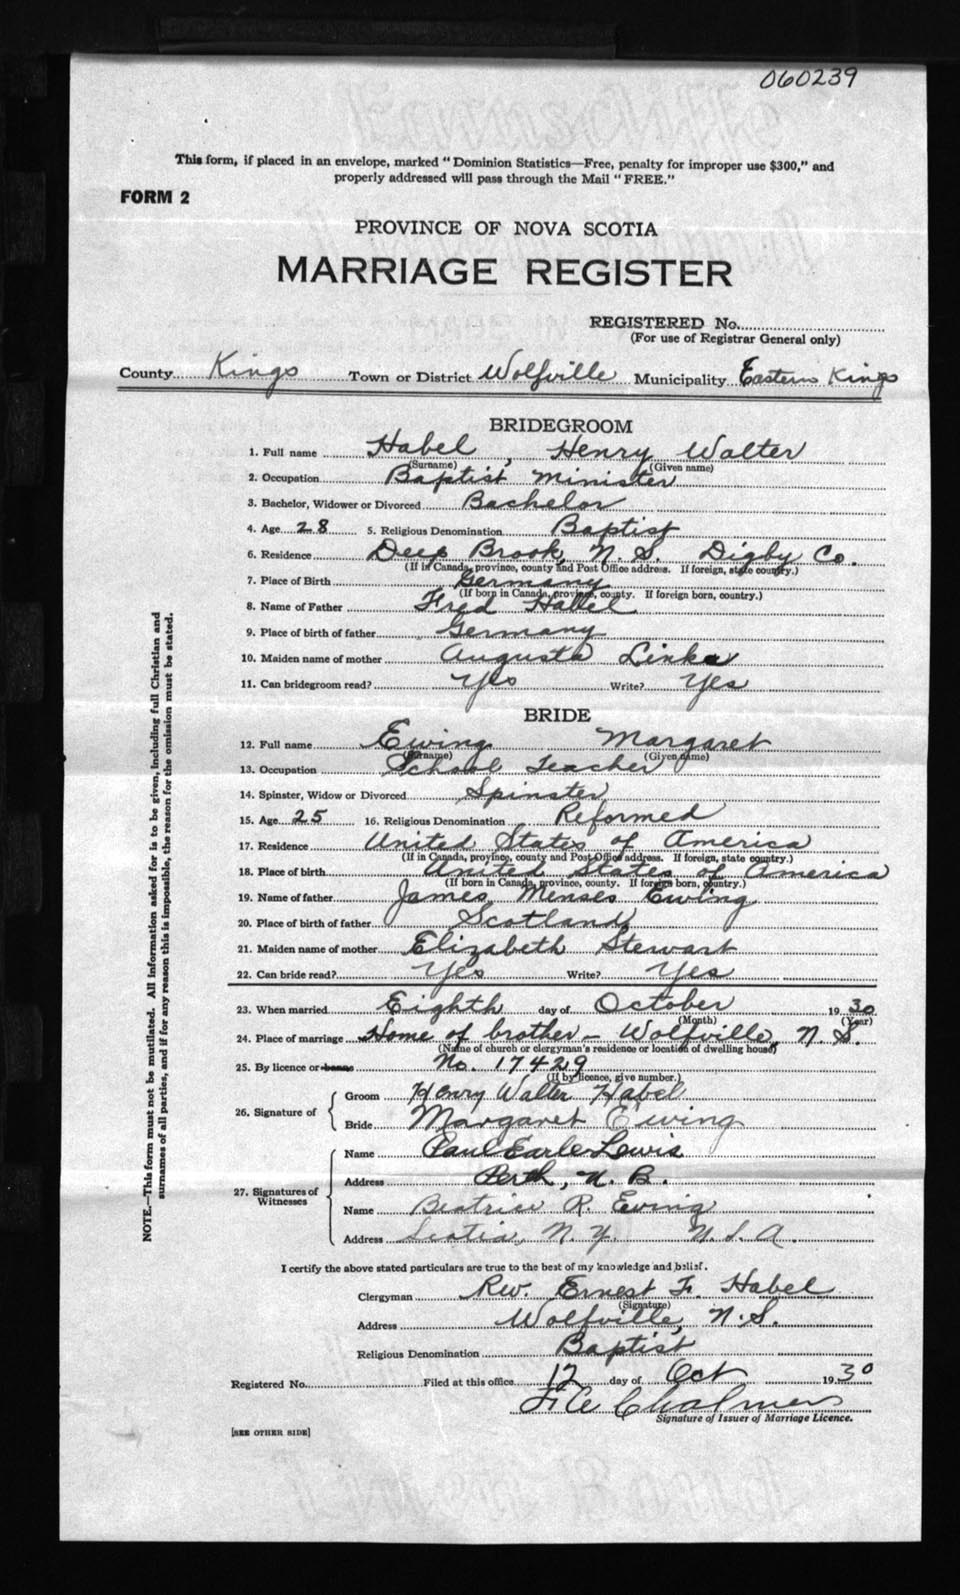 060239
This form, if placed in an envelope, marked "Dominion Statistics—Free, penalty for improper use $300," and
properly addressed will pass through the Mail "FREE."
FORM 2
PROVINCE OF NOVA SCOTIA
MARRIAGE REGISTER
REGISTERED No.
(For use of Registrar General only)
County Kings Town or District Wolfville Municipality Eastern Kings
BRIDEGROOM
1. Full name Habel, Henry Walter
(Surname) (Given name)
2. Occupation Baptist Minister
3. Bachelor, Widower or Divorced Bachelor
4. Age 28 5. Religious Denomination Baptist
6. Residence Deep Brook, N. S. Digby Co.
(If in Canada, province, county and Post Office address. If foreign, state country.)
7. Place of Birth Germany
(If born in Canada, province, county. If foreign born, country.)
8. Name of Father Fred Habel
9. Place of birth of father Germany
10. Maiden name of mother Augusta Linka
11. Can bridegroom read? Yes Write? Yes
BRIDE
12. Full name Ewing Margaret
(Surname) (Given name)
13. Occupation School Teacher
14. Spinster, Widow or Divorced Spinster
15. Age 25 16. Religious Denomination Reformed
17. Residence United States of America
(If in Canada, province, county and Post Office address. If foreign, state country.)
18. Place of birth United States of America
(If born in Canada, province, county. If foreign born, country.)
19. Name of father James Menses Ewing
20. Place of birth of father Scotland
21. Maiden name of mother Elizabeth Stewart
22. Can bride read? Yes Write? Yes
23. When married Eighth day of October 1930
(Month) (Year)
24. Place of marriage Home of brother - Wolfville, N. S.
(Name of church or clergyman's residence or location of dwelling house)
25. By licence or banns No. 17429
(If by licence, give number.)
26. Signature of
Groom Henry Walter Habel
Bride Margaret Ewing
27. Signatures of Witnesses
Name Paul Earle Lewis
Address Perth, N. B.
Name Beatrice R. Ewing
Address Scotia, N. Y. U. S. A.
I certify the above stated particulars are true to the best of my knowledge and belief.
Clergyman Rev. Ernest F. Habel
(Signature)
Address Wolfville, N. S.
Religious Denomination Baptist
Registered No. Filed at this office 12 day of Oct 1930
Chalmers
Signature of Issuer of Marriage Licence.
[SEE OTHER SIDE]
NOTE.—This form must not be mutilated. All information asked for is to be given, including full Christian and
surnames of all parties, and if for any reason this is impossible, the reason for the omission must be stated.